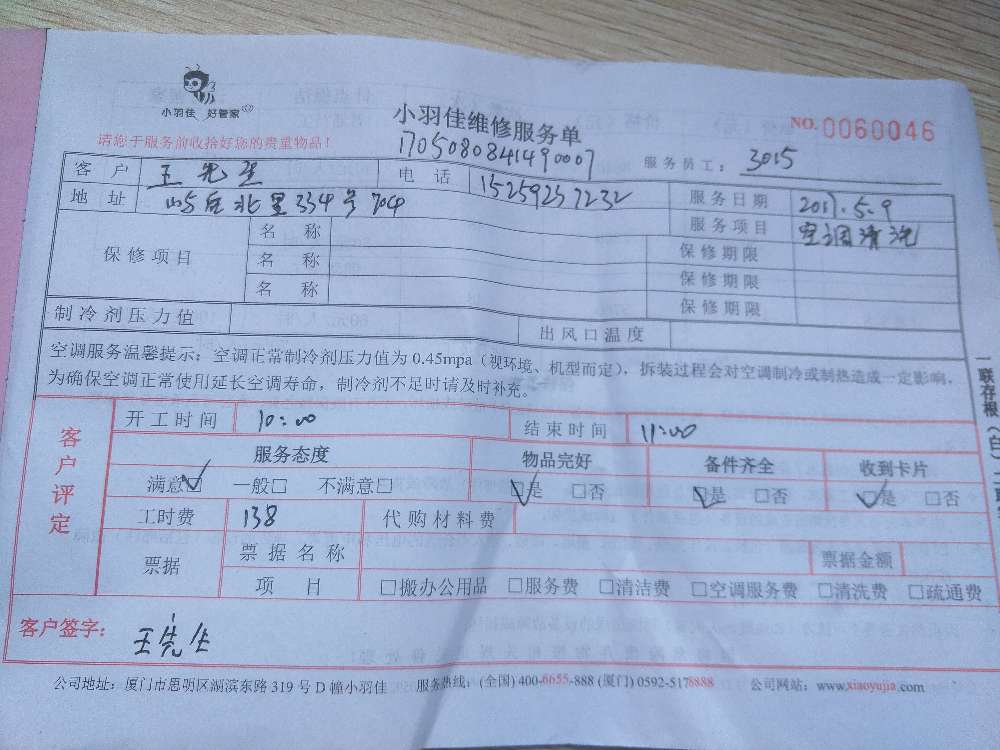 小羽佳 好管家
小羽佳维修服务单
NO.0060046
请您于服务前收拾好您的贵重物品！
1705080841490007
服务员工： 3015
客户 王先生 电话 15259237232 服务日期 2017.5.9
地址 屿后北里334号704 服务项目 空调清洗
保修项目 名称 保修期限
名称 保修期限
名称 保修期限
制冷剂压力值 出风口温度
空调服务温馨提示：空调正常制冷剂压力值为 0.45mpa（视环境、机型而定），拆装过程会对空调制冷或制热造成一定影响，
为确保空调正常使用延长空调寿命，制冷剂不足时请及时补充。
一联存根（白）
客户评定
开工时间 10:00 结束时间 11:00
服务态度 物品完好 备件齐全 收到卡片
满意☑ 一般□ 不满意□ ☑是 □否 ☑是 □否 ☑是 □否
工时费 138 代购材料费
票据 票据名称 票据金额
项目 □搬办公用品 □服务费 □清洁费 □空调服务费 □清洗费 □疏通费
客户签字： 王先生
公司地址：厦门市思明区湖滨东路 319 号 D 幢小羽佳 服务热线：(全国) 400-6655-888 (厦门) 0592-5178888 公司网站：www.xiaoyujia.com